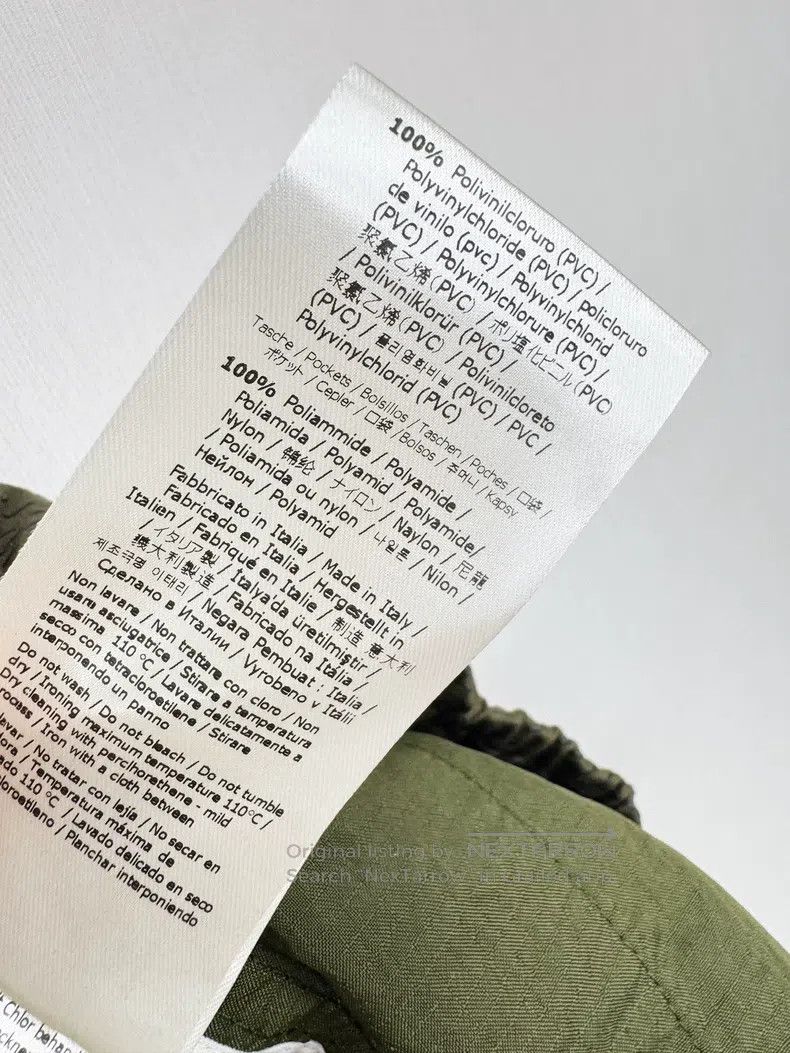 100% Polivinilcloruro (PVC) /
Polyvinylchloride (PVC) / policloruro
de vinilo (pvc) / Polyvinylchlorid
(PVC) / Polyvinylchlorure (PVC) /
聚氯乙烯(PVC) / ポリ塩化ビニル (PVC)
/ Polivinilklorür (PVC) /
聚氯乙烯(PVC) / Polivinilcloreto
(PVC) / 폴리염화비닐 (PVC) / PVC /
Polyvinylchlorid (PVC)
Tasche / Pockets / Bolsillos / Taschen / Poches / 口袋 /
ポケット / Cepler / 口袋 / Bolsos / 주머니 / Kapsy
100% Poliammide / Polyamide /
Poliamida / Polyamid / Polyamide /
Nylon / 锦纶 / ナイロン / Naylon / 尼龍
/ Poliamida ou nylon / 나일론 / Nilon /
Нейлон / Polyamid
Fabbricato in Italia / Made in Italy /
Fabricado en Italia / Hergestellt in
Italien / Fabriqué en Italie / 制造 意大利
/ イタリア製 / İtalya'da üretilmiştir /
義大利製造 / Fabricado na Itália /
제조국명 이태리 / Negara Pembuat : Italia /
Сделано в Италии / Vyrobeno v Itálii
Non lavare / Non trattare con cloro / Non
usare asciugatrice / Stirare a temperatura
massima 110 °C / Lavare delicatamente a
secco con tetracloroetilene / Stirare
interponendo un panno
Do not wash / Do not bleach / Do not tumble
dry / Ironing maximum temperature 110°C /
Dry cleaning with perclhorethene - mild
process / Iron with a cloth between
lavar / No tratar con lejía / No secar en
/ Temperatura máxima de
110 °C / Lavado delicado en seco
/ Planchar interponiendo
Chlor
Original listing by NEXTARROW
Search "NexTarrow"